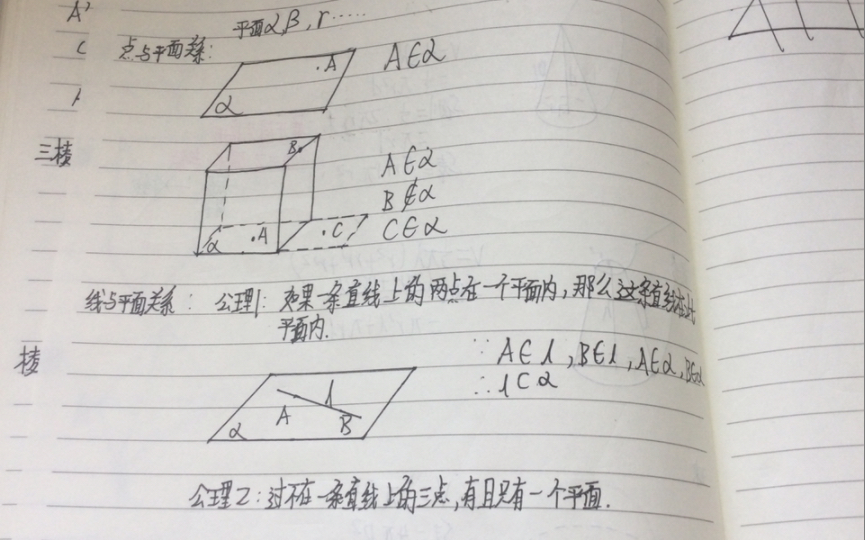 平面α,β,r……
点与平面关系:
A
α
A∈α
三棱
B
A∈α
B∉α
C∈α
α
A
C
线与平面关系: 公理1: 如果一条直线上的两点在一个平面内,那么这条直线在此
平面内.
棱
∵ A∈l, B∈l, A∈α, B∈α
∴ l⊂α
A
l
B
α
公理2:过不在一条直线上的三点,有且只有一个平面.